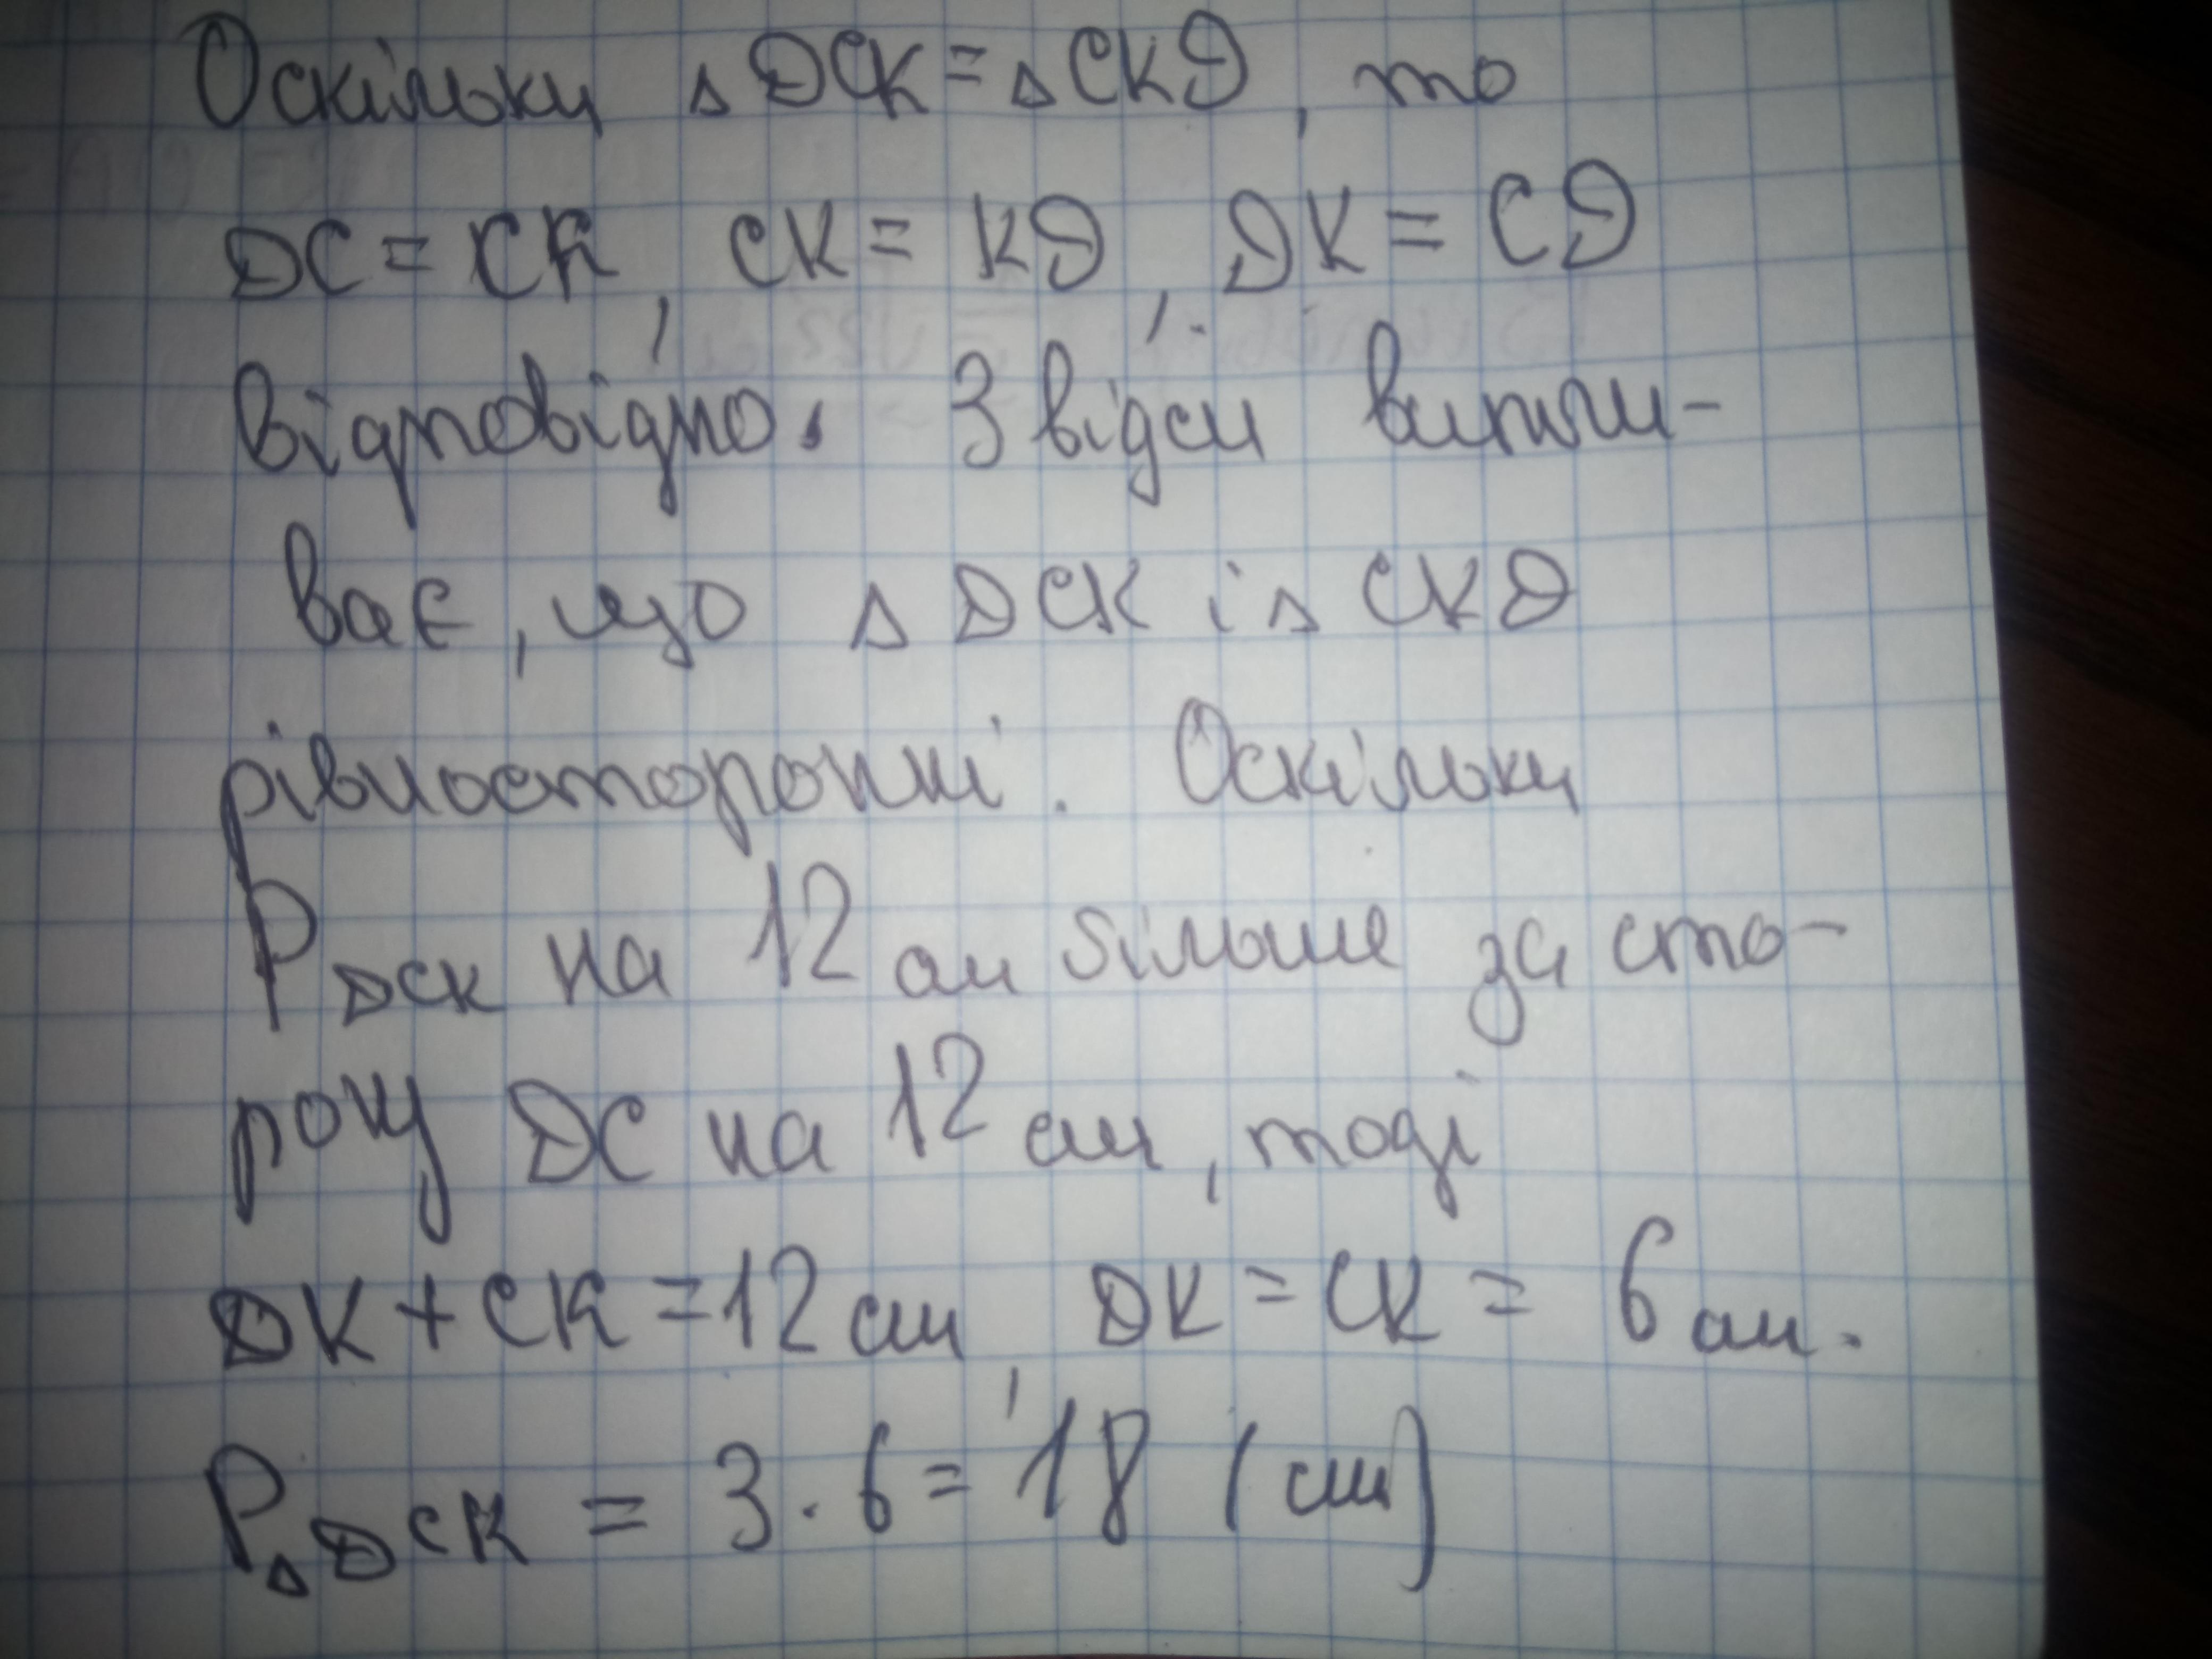 Оскільки △ DCK = △ CKD, то
DC = CK, CK = KD, DK = CD
відповідно. Звідси випли-
ває, що △ DCK і △ CKD
рівносторонні. Оскільки
P DCK на 12 см більше за сто-
рону DC на 12 см, тоді
DK + CK = 12 см, DK = CK = 6 см.
P△DCK = 3 · 6 = 18 (см)